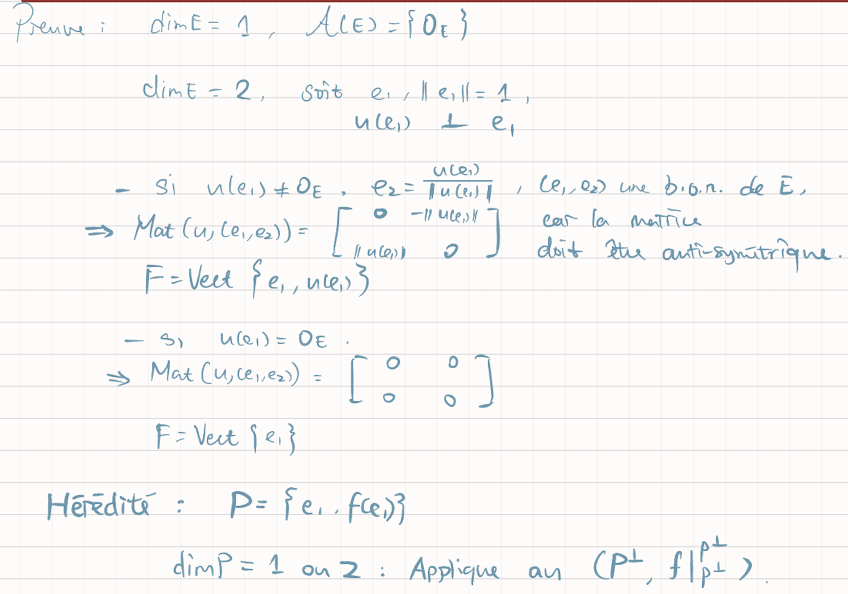 Preuve : dim E = 1 , A(E) = {0_E}
dim E = 2, soit e₁, ‖e₁‖ = 1,
u(e₁) ⊥ e₁
- Si u(e₁) ≠ 0_E . e₂ = u(e₁)/‖u(e₁)‖ , (e₁, e₂) une b.o.n. de E,
⇒ Mat(u, (e₁, e₂)) = [ 0 -‖u(e₁)‖ ; ‖u(e₁)‖ 0 ] car la matrice
doit être anti-symétrique.
F = Vect {e₁, u(e₁)}
- Si u(e₁) = 0_E .
⇒ Mat(u, (e₁, e₂)) = [ 0 0 ; 0 0 ]
F = Vect {e₁}
Hérédité : P = {e₁, f(e₁)}
dim P = 1 ou 2 : Applique au (P^⊥, f|_{P^⊥}^{P^⊥}).